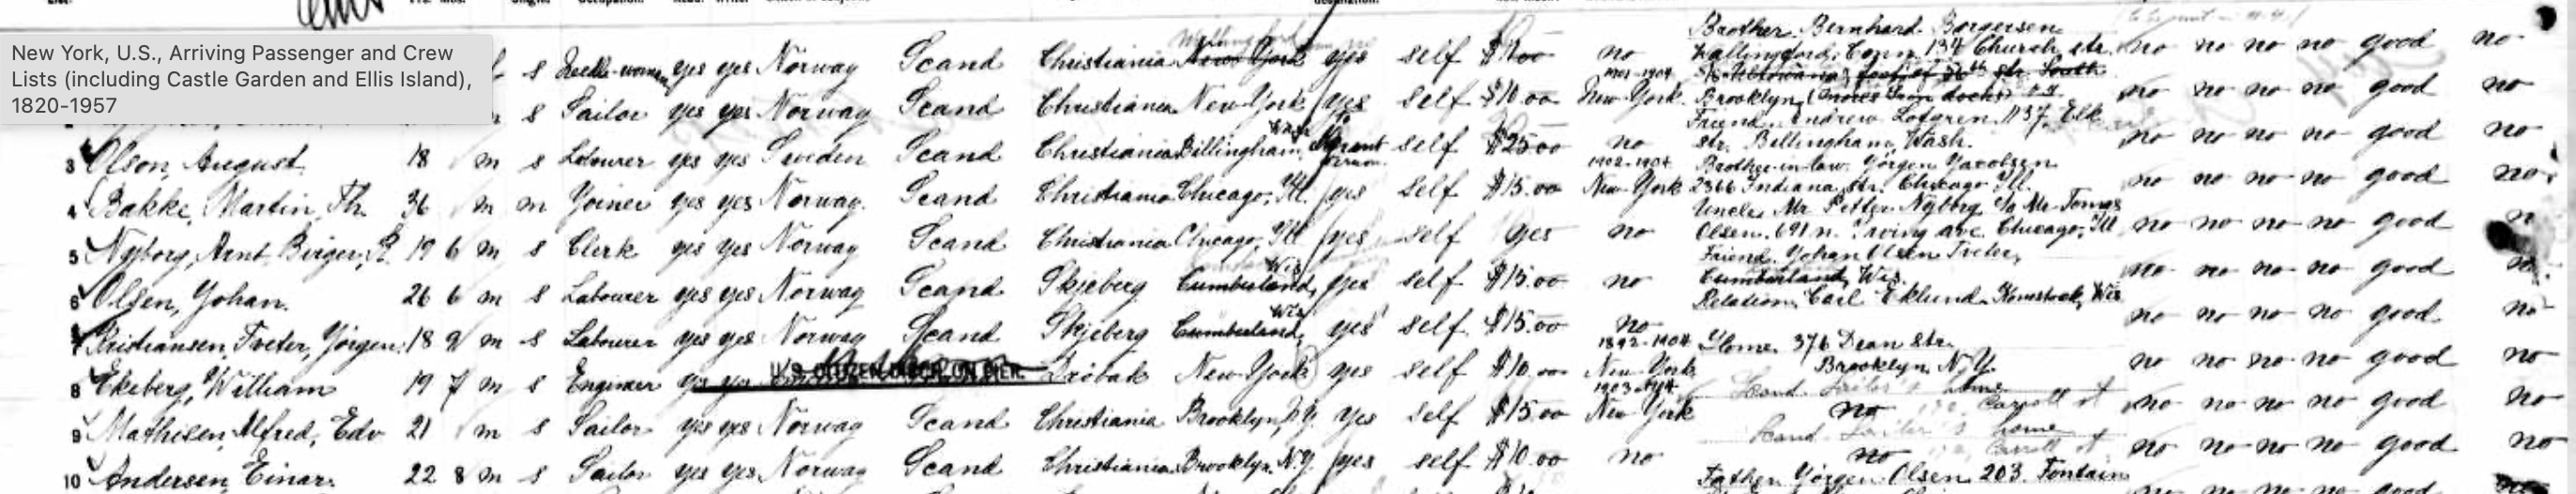 New York, U.S., Arriving Passenger and Crew
Lists (including Castle Garden and Ellis Island),
1820-1957
Brother Bernhard Borgersen
s yes yes Norway Scand Christiania New York yes self no Wallingford, Conn. 134 Church str. no no no no good no
1901-1904
s Sailor yes yes Norway Scand Christiania New York yes self $10.00 New York Brooklyn no no no no good no
Friend Andrew Lofgren 1137 Elk
3 Olson, August 18 m s Labourer yes yes Sweden Scand Christiania Bellingham, Wash self $25.00 no str. Bellingham, Wash. no no no no good no
1902-1904 Brother-in-law Yörgen Yacobsen
4 Bakke, Martin, Th. 36 m m Yoiner yes yes Norway Scand Christiania Chicago, Ill. yes self $15.00 New York 2366 Indiana str. Chicago Ill. no no no no good no
Uncle Mr Petter Nyborg
5 Nyborg, Arnt Birger, R. 19 6 m s Clerk yes yes Norway Scand Christiania Chicago, Ill yes self yes no Olsen 691 n. Irving ave. Chicago, Ill no no no no good n
Friend Yohan Olsen Treter,
6 Olsen, Yohan. 26 6 m s Labourer yes yes Norway Scand Skjeberg Cumberland, Wis yes self $15.00 no Cumberland, Wis. no no no no good no
Relation, Carl Eklund, Komstock, Wis
Kristiansen, Treter, Yörgen 18 9 m s Labourer yes yes Norway Scand Skjeberg Cumberland, Wis yes self $15.00 no no no no no good no
1892-1904 Home 376 Dean str.
8 Ekeberg, William 19 7 m s Engineer yes yes U.S. CITIZEN Dröbak New York yes self $10.00 New York Brooklyn N.Y. no no no no good no
1903
9 Mathisen Alfred, Edv 21 m s Sailor yes yes Norway Scand Christiania Brooklyn, N.Y. yes self $15.00 New York no Carroll st no no no no good no
Scand Sailor's home
10 Andersen, Einar. 22 8 m s Sailor yes yes Norway Scand Christiania Brooklyn N.Y. yes self $10.00 no no Carroll st no no no no good no
Father Yörgen Olsen 203 Fontain